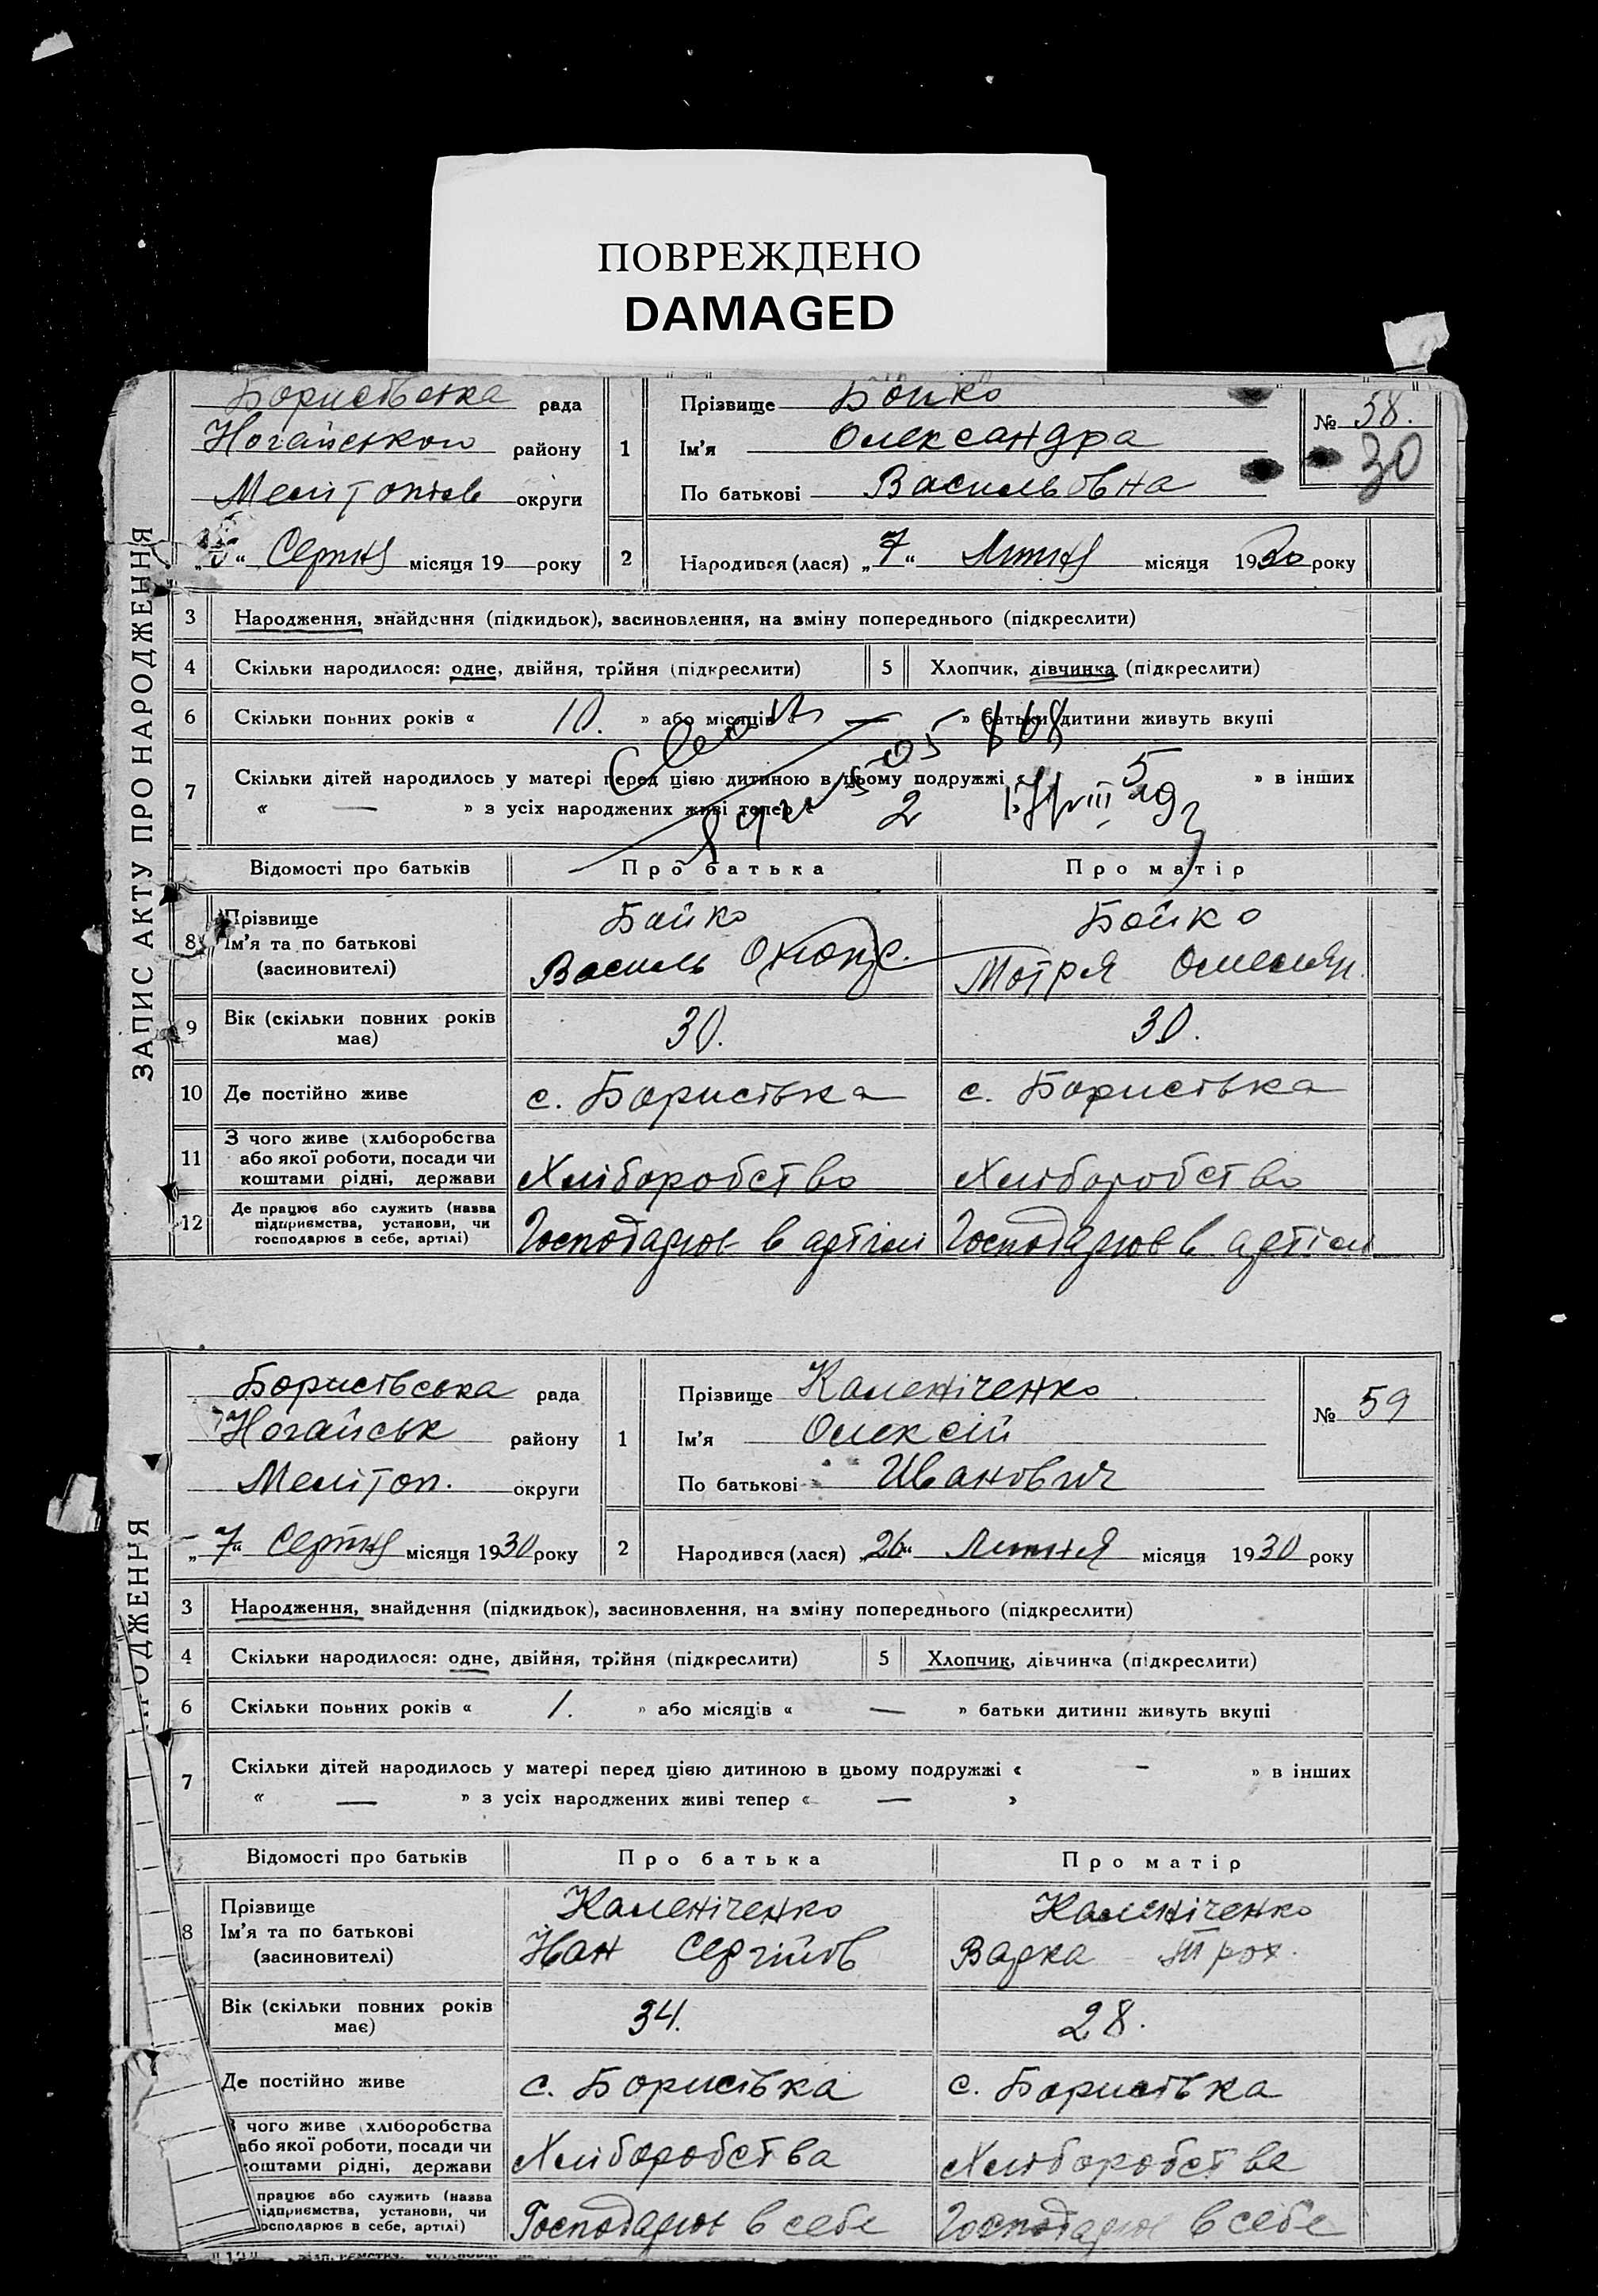 ПОВРЕЖДЕНО
DAMAGED
ЗАПИС АКТУ ПРО НАРОДЖЕННЯ
Бориствська рада
Ногайського району
Мелітопільс округи
Серпня місяця 19 року
1
Прізвище Бойко
Ім'я Олександра
По батькові Васильовна
№ 58.
30
2
Народився (лася) „7“ Липня місяця 1930 року
3 Народження, знайдення (підкидьок), засиновлення, на зміну попереднього (підкреслити)
4 Скільки народилося: одне, двійня, трійня (підкреслити) 5 Хлопчик, дівчинка (підкреслити)
6 Скільки повних років « 10. » або місяців « — » батьки дитини живуть вкупі
7 Скільки дітей народилось у матері перед цією дитиною в цьому подружжі « 5 » в інших
« — » з усіх народжених живі тепер « 2
Відомості про батьків Про батька Про матір
8 Прізвище Бойко Бойко
Ім'я та по батькові Василь Мотря Омелян.
(засновителі)
9 Вік (скільки повних років має) 30. 30.
10 Де постійно живе с. Бориствка с. Бориствка
11 З чого живе (хліборобства або якої роботи, посади чи коштами рідні, держави Хліборобство Хліборобство
12 Де працює або служить (назва підприємства, установи, чи господарює в себе, артілі) Господарює в артілі Господарює в артілі
НАРОДЖЕННЯ
Бориствська рада
Ногайськ району
Мелітоп. округи
„7“ Серпня місяця 1930 року
1
Прізвище Каленіченко
Ім'я Олексій
По батькові Иванович
№ 59
2
Народився (лася) „26“ Липня місяця 1930 року
3 Народження, знайдення (підкидьок), засиновлення, на зміну попереднього (підкреслити)
4 Скільки народилося: одне, двійня, трійня (підкреслити) 5 Хлопчик, дівчинка (підкреслити)
6 Скільки повних років « 1. » або місяців « — » батьки дитини живуть вкупі
7 Скільки дітей народилось у матері перед цією дитиною в цьому подружжі « - » в інших
« — » з усіх народжених живі тепер « — »
Відомості про батьків Про батька Про матір
8 Прізвище Каленіченко Каленіченко
Ім'я та по батькові Іван Сергійов Варка Трох.
(засиновителі)
Вік (скільки повних років має) 34. 28.
Де постійно живе с. Бориствка с. Бориствка
чого живе (хліборобства або якої роботи, посади чи коштами рідні, держави Хліборобства Хліборобства
працює або служить (назва підприємства, установи, чи господарює в себе, артілі) Господарює в себе Господарює в себе